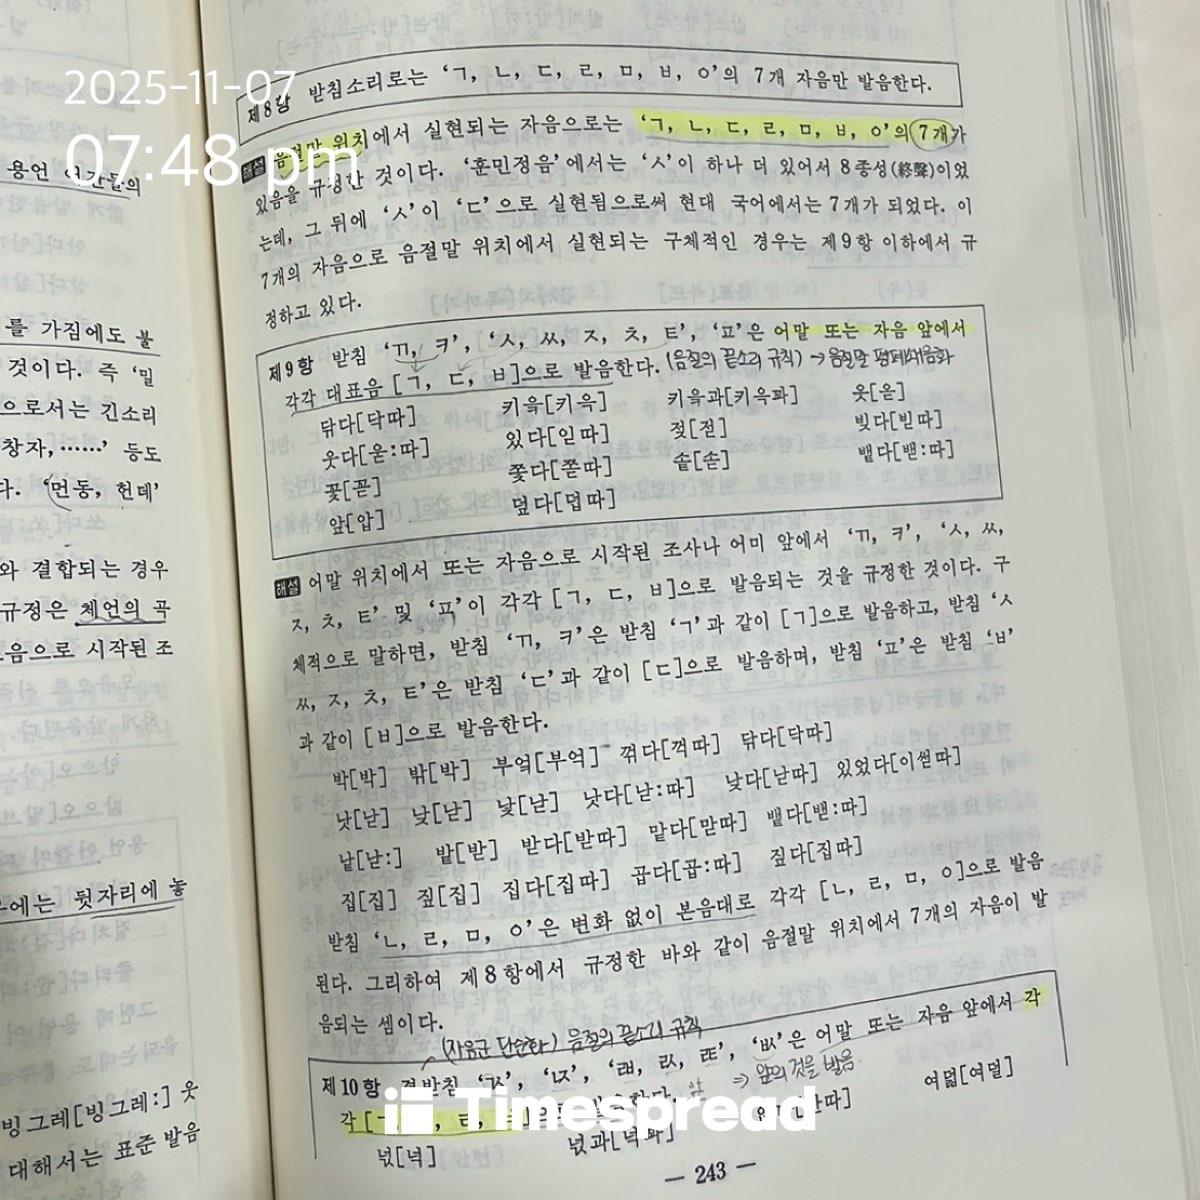 2025-11-07
07:48 pm
용언 어간들의
를 가짐에도 불
것이다. 즉 '밀
으로서는 긴소리
창자,……' 등도
다. '먼동, 헌데'
와 결합되는 경우
규정은 체언의 곡
모음으로 시작된 조
에는 뒷자리에 놓
빙그레[빙그레:] 웃
대해서는 표준 발음
제8항 받침소리로는 'ㄱ, ㄴ, ㄷ, ㄹ, ㅁ, ㅂ, ㅇ'의 7개 자음만 발음한다.
해설 음절말 위치에서 실현되는 자음으로는 'ㄱ, ㄴ, ㄷ, ㄹ, ㅁ, ㅂ, ㅇ'의 7개가
있음을 규정한 것이다. '훈민정음'에서는 'ㅅ'이 하나 더 있어서 8종성(終聲)이었
는데, 그 뒤에 'ㅅ'이 'ㄷ'으로 실현됨으로써 현대 국어에서는 7개가 되었다. 이
7개의 자음으로 음절말 위치에서 실현되는 구체적인 경우는 제9항 이하에서 규
정하고 있다.
제9항 받침 'ㄲ, ㅋ', 'ㅅ, ㅆ, ㅈ, ㅊ, ㅌ', 'ㅍ'은 어말 또는 자음 앞에서
각각 대표음 [ㄱ, ㄷ, ㅂ]으로 발음한다. (음절의 끝소리 규칙) → 음절말 평폐쇄음화
닦다[닥따] 키읔[키윽] 키읔과[키윽꽈] 옷[옫]
웃다[욷:따] 있다[읻따] 젖[젇] 빚다[빋따]
꽃[꼳] 쫓다[쫃따] 솥[솓] 뱉다[밷:따]
앞[압] 덮다[덥따]
해설 어말 위치에서 또는 자음으로 시작된 조사나 어미 앞에서 'ㄲ, ㅋ', 'ㅅ, ㅆ,
ㅈ, ㅊ, ㅌ' 및 'ㅍ'이 각각 [ㄱ, ㄷ, ㅂ]으로 발음되는 것을 규정한 것이다. 구
체적으로 말하면, 받침 'ㄲ, ㅋ'은 받침 'ㄱ'과 같이 [ㄱ]으로 발음하고, 받침 'ㅅ
ㅆ, ㅈ, ㅊ, ㅌ'은 받침 'ㄷ'과 같이 [ㄷ]으로 발음하며, 받침 'ㅍ'은 받침 'ㅂ'
과 같이 [ㅂ]으로 발음한다.
박[박] 밖[박] 부엌[부억] 꺾다[꺽따] 닦다[닥따]
낫[낟] 낮[낟] 낯[낟] 낫다[낟:따] 낮다[낟따] 있었다[이썯따]
낟[낟:] 밭[받] 받다[받따] 맡다[맏따] 뱉다[밷:따]
집[집] 짚[집] 집다[집따] 곱다[곱:따] 짚다[집따]
받침 'ㄴ, ㄹ, ㅁ, ㅇ'은 변화 없이 본음대로 각각 [ㄴ, ㄹ, ㅁ, ㅇ]으로 발음
된다. 그리하여 제8항에서 규정한 바와 같이 음절말 위치에서 7개의 자음이 발
음되는 셈이다.
(자음군 단순화) 음절의 끝소리 규칙
제10항 겹받침 'ㄳ', 'ㄵ', 'ㄼ, ㄽ, ㄾ', 'ㅄ'은 어말 또는 자음 앞에서 각
⇒ 앞의 것을 발음
여덟[여덜]
넋[넉] 넋과[넉꽈]
Timespread
— 243 —